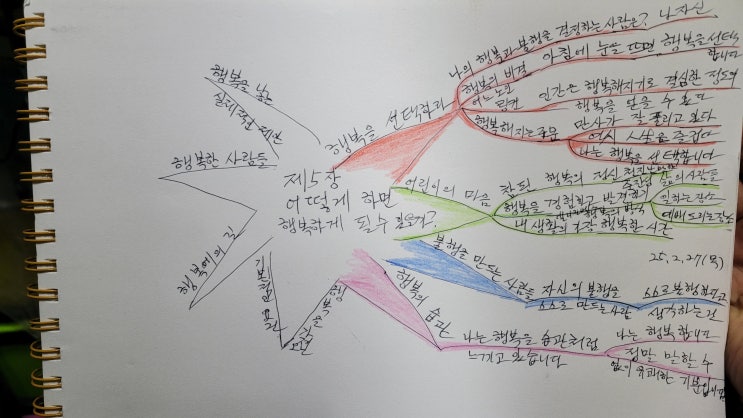 제5장
어떻게 하면
행복하게 될수 있을까?
행복을 선택하라
나의 행복과 불행을 결정하는 사람은? 나 자신
행복의 비결
아침에 눈을 뜨면 행복을 선택
합니다
어느 노인
링컨
인간은 행복해지기로 결심한 정도의
행복을 얻을 수 있다
행복해지는
만사가 잘 풀리고 있다
역시 시낭을 즐겁다
나는 행복을 선택합니다
어린이의 마음
참된 행복의 정신
행복을 경험하고 발견하고
일하는 장소
예배 드리는 장소
내 생활의 가장 행복한 시간
25. 2. 27(목)
불행을 만드는 사람들
자신의 불행을
스스로 만드는 사람
스스로 불행하다고
생각하는 것
행복의 습관
나는 행복을 습관처럼
느끼고 있습니다
나는 행복합니다
정말 말할 수
없이 유쾌한 기분입니다
행복에의 길
행복한 사람들
행복을 낳는